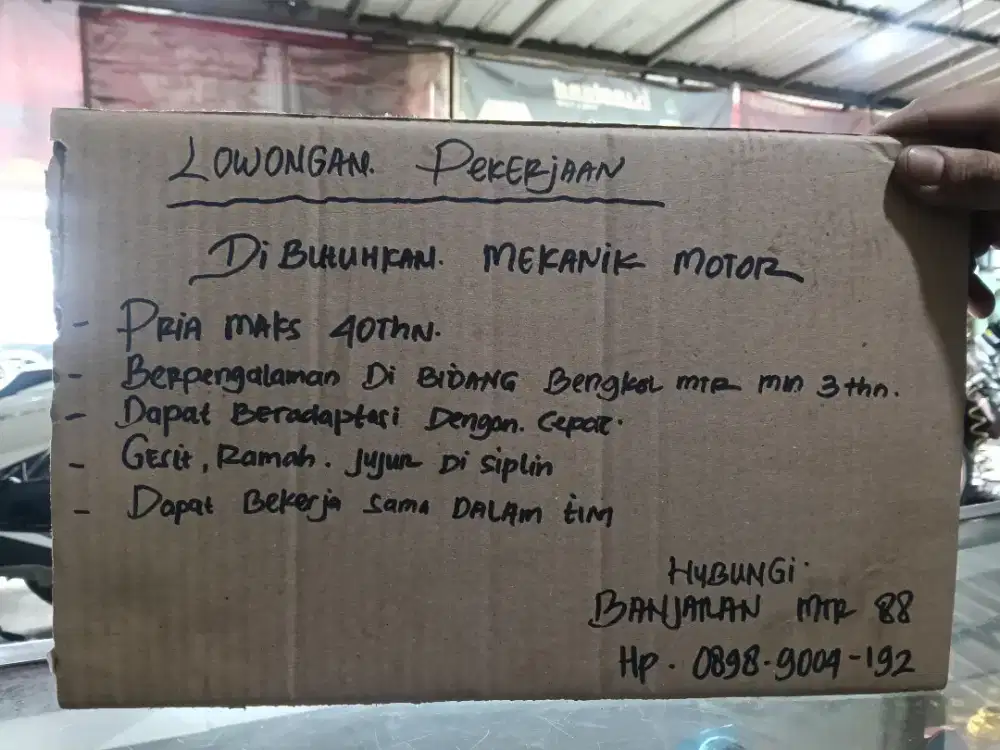 LOWONGAN. PEKERJAAN
DiBUTUHKAN. MEKANIK MOTOR
- PRIA MAKS 40THN.
- Berpengalaman Di BIDANG Bengkel MTR MIN 3 thn.
- Dapat Beradaptasi Dengan. Cepat.
- GESit, Ramah. Jujur Di Siplin
- Dapat Bekerja Sama DALAM tiM
HUBUNGi.
BANJARAN MTR 88
Hp. 0898-9004-192